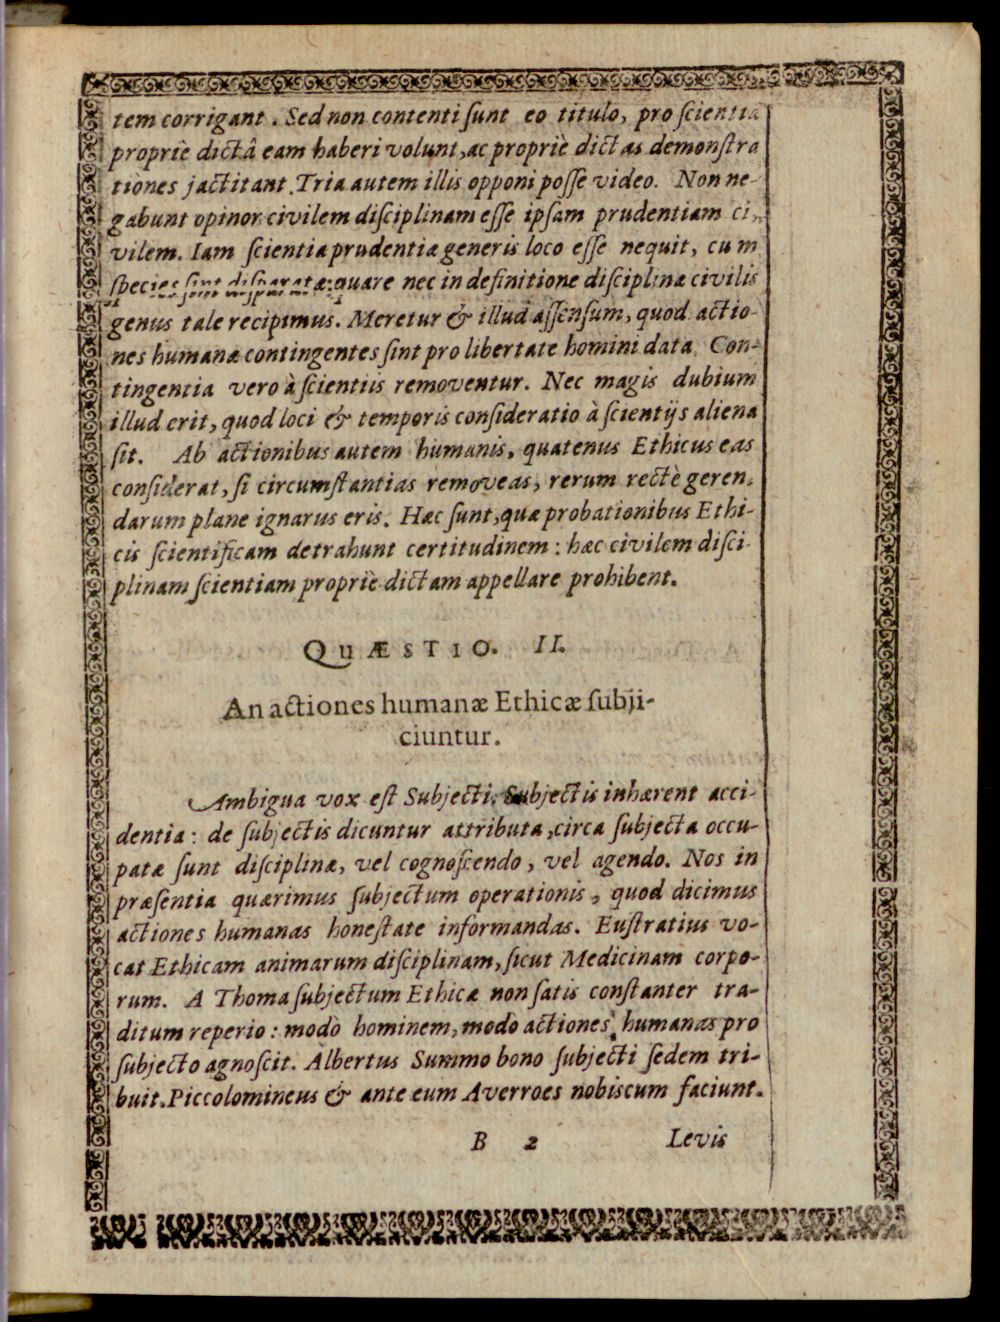 tem corrigant. Sed non contenti ſunt eo titulo, pro ſcientia
propriè dictâ eam haberi volunt, ac propriè dictas demonſtra
tiones jactitant. Tria autem illis opponi poſſe video. Non ne-
gabunt opinor civilem diſciplinam eſſe ipſam prudentiam ci-
vilem. Iam ſcientia prudentiæ generis loco eſſe nequit, cum
ſpecies ſint diſparatæ: quare nec in definitione diſciplinæ civilis
genus tale recipimus. Meretur & illud aſſenſum, quod actio-
nes humanæ contingentes ſint pro libertate homini data. Con-
tingentia vero à ſcientiis removentur. Nec magis dubium
illud erit, quod loci & temporis conſideratio à ſcientijs aliena
ſit. Ab actionibus autem humanis, quatenus Ethicus eas
conſiderat, ſi circumſtantias removeas, rerum rectè geren-
darum plane ignarus eris. Hæc ſunt, quæ probationibus Ethi-
cis ſcientificam detrahunt certitudinem: hæc civilem diſci-
plinam ſcientiam propriè dictam appellare prohibent.
QUÆSTIO. II.
An actiones humanæ Ethicæ ſubji-
ciuntur.
Ambigua vox eſt Subjecti. Subjectis inhærent acci-
dentia: de ſubjectis dicuntur attributa, circa ſubjecta occu-
patæ ſunt diſciplinæ, vel cognoſcendo, vel agendo. Nos in
præſentia quærimus ſubjectum operationis, quod dicimus
actiones humanas honeſtate informandas. Euſtratius vo-
cat Ethicam animarum diſciplinam, ſicut Medicinam corpo-
rum. A Thoma ſubjectum Ethicæ non ſatis conſtanter tra-
ditum reperio: modò hominem, modò actiones humanas pro
ſubjecto agnoſcit. Albertus Summo bono ſubjecti ſedem tri-
buit. Piccolomineus & ante eum Averroes nobiscum faciunt.
B 2 Levis